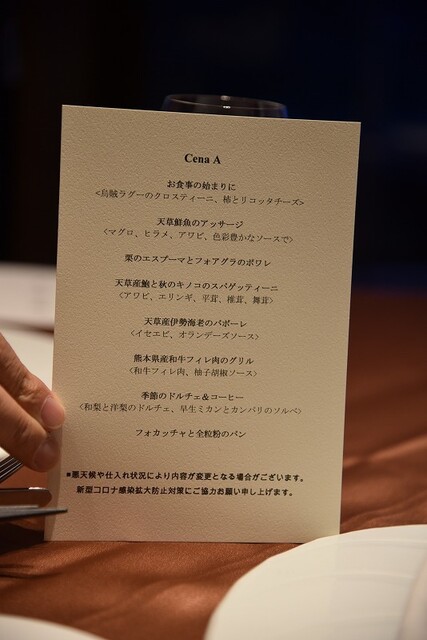 Cena A
お食事の始まりに
<烏賊ラグーのクロスティーニ、柿とリコッタチーズ>
天草鮮魚のアッサージ
<マグロ、ヒラメ、アワビ、色彩豊かなソースで>
栗のエスプーマとフォアグラのポワレ
天草産鮑と秋のキノコのスパゲッティーニ
<アワビ、エリンギ、平茸、椎茸、舞茸>
天草産伊勢海老のバポーレ
<イセエビ、オランデーズソース>
熊本県産和牛フィレ肉のグリル
<和牛フィレ肉、柚子胡椒ソース>
季節のドルチェ＆コーヒー
<和梨と洋梨のドルチェ、早生ミカンとカンパリのソルベ>
フォカッチャと全粒粉のパン
■悪天候や仕入れ状況により内容が変更となる場合がございます。
新型コロナ感染拡大防止対策にご協力お願い申し上げます。